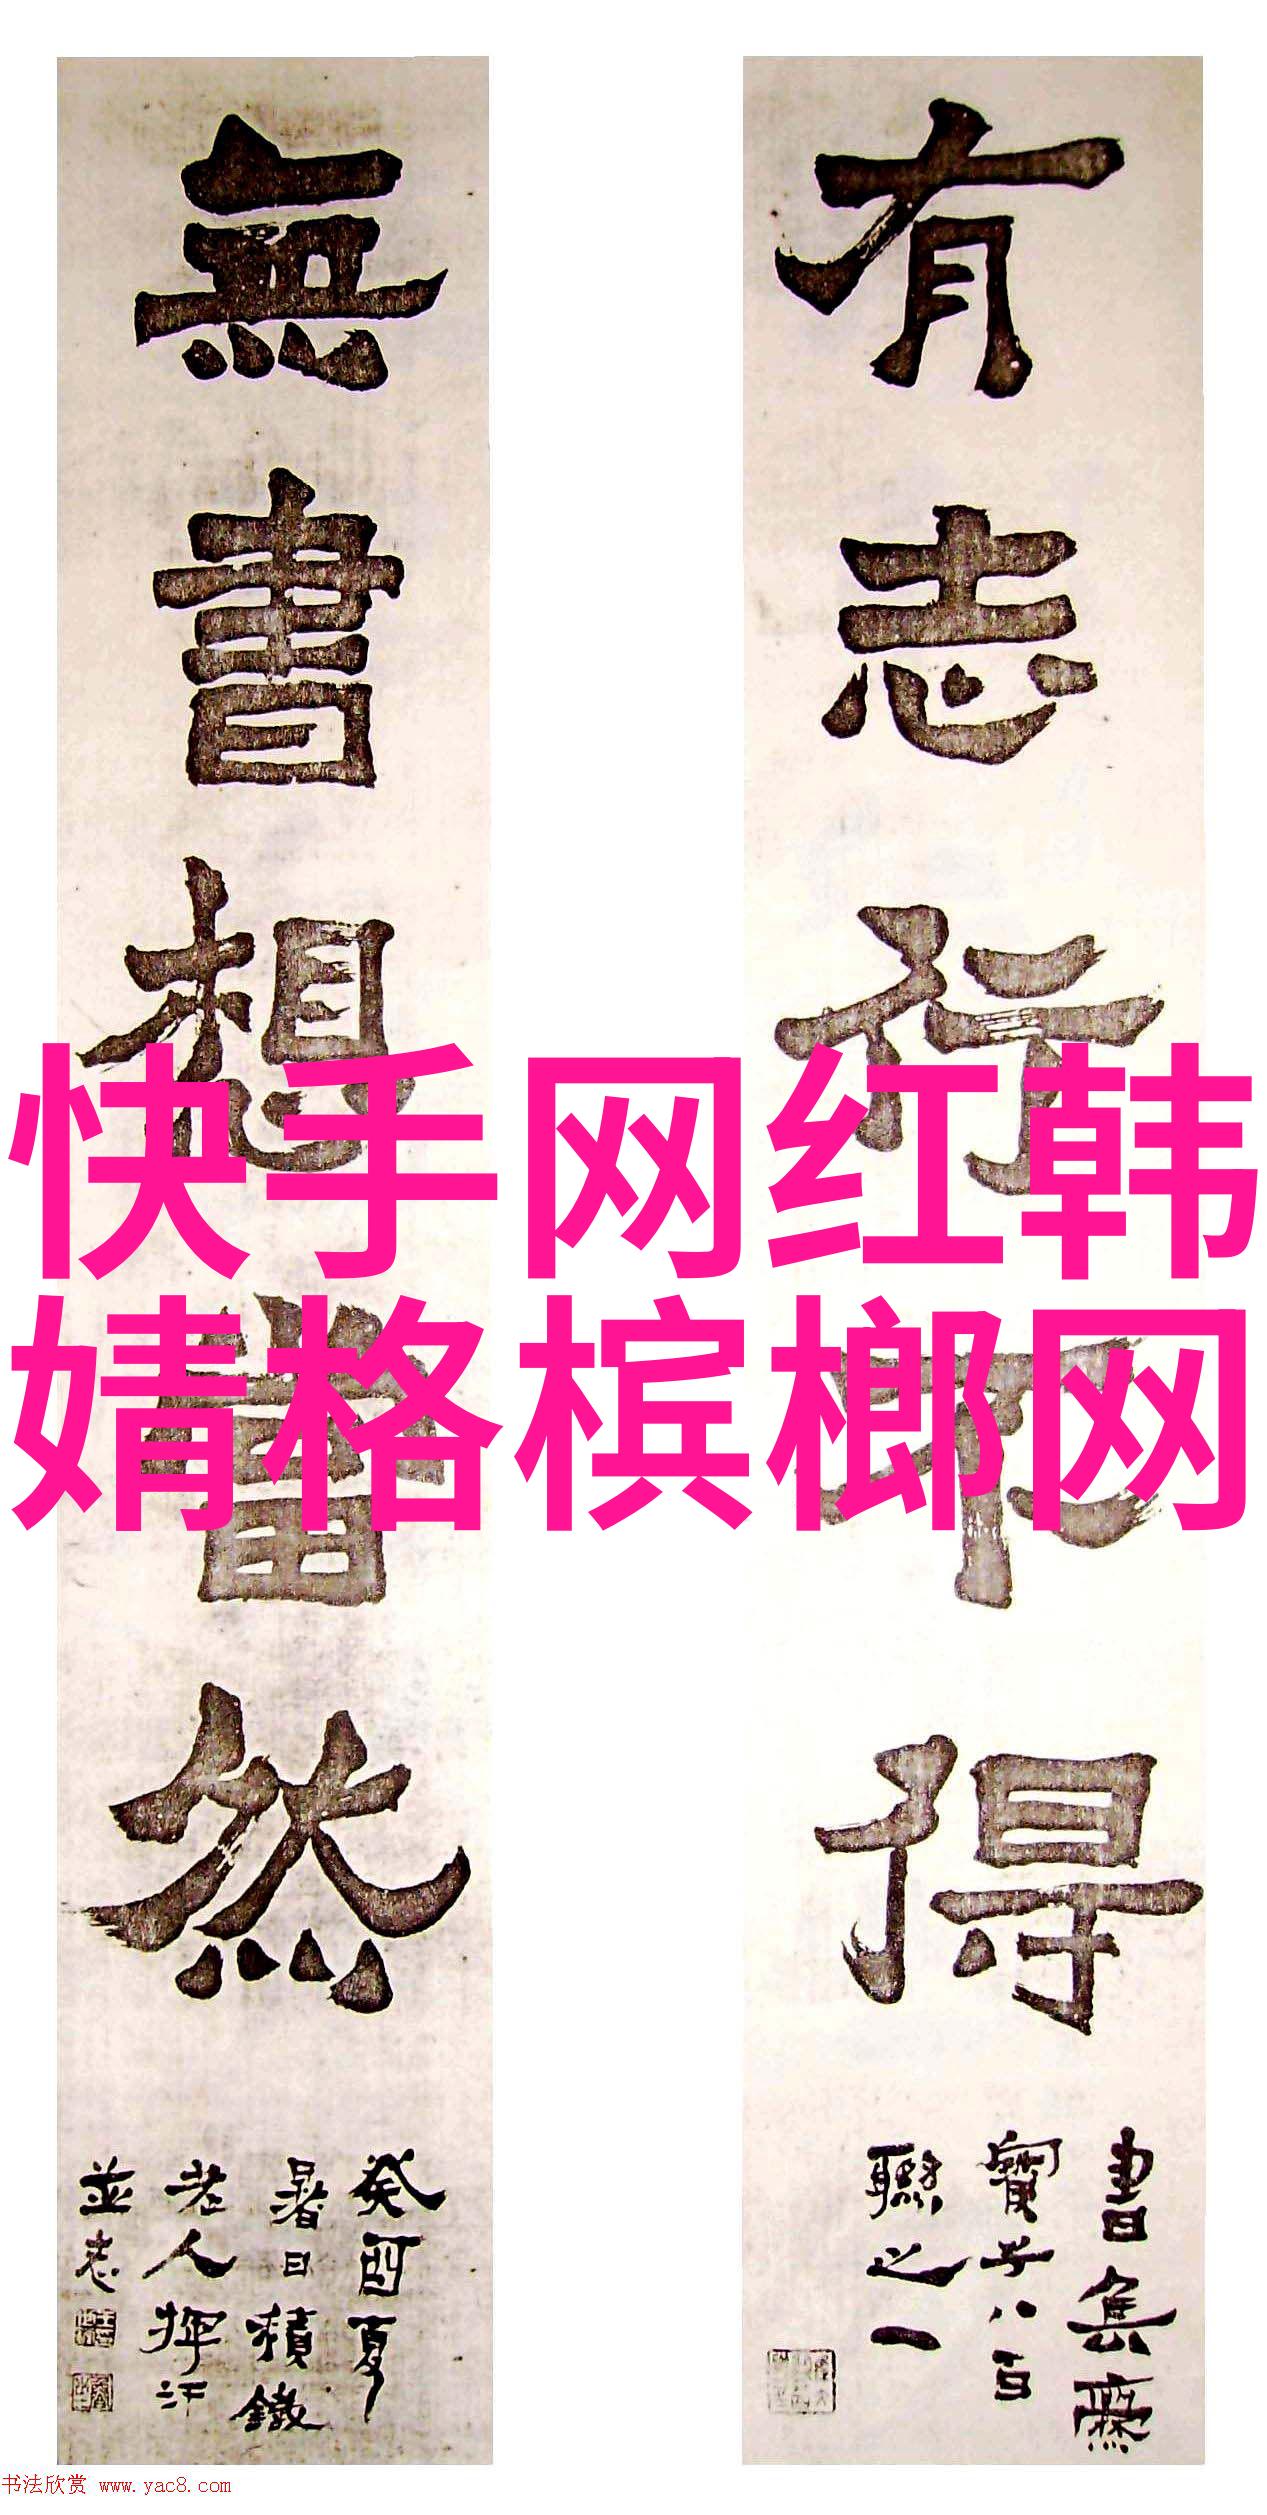 有志行不得
書集齋
寶子八百
聯之一
無書想當然
癸酉夏
暑日積鐵
老人揮汗
並志
快手网红韩
婧格槟榔网
书法欣赏 www.yac8.com